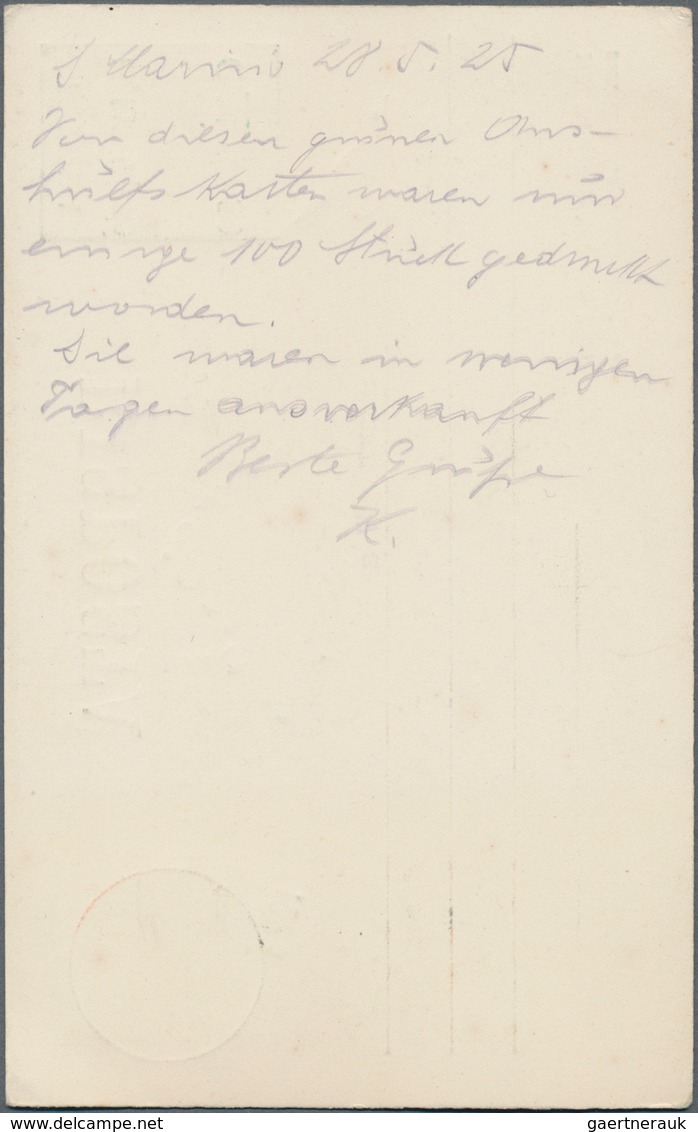 S. Marino 28. 5. 25
Von diesen grünen Aus-
hülfs Karten waren nur
einige 100 Stück gedruckt
worden.
Sie waren in wenigen
Tagen ausverkauft
Beste Grüße
K.
gaertnerauk